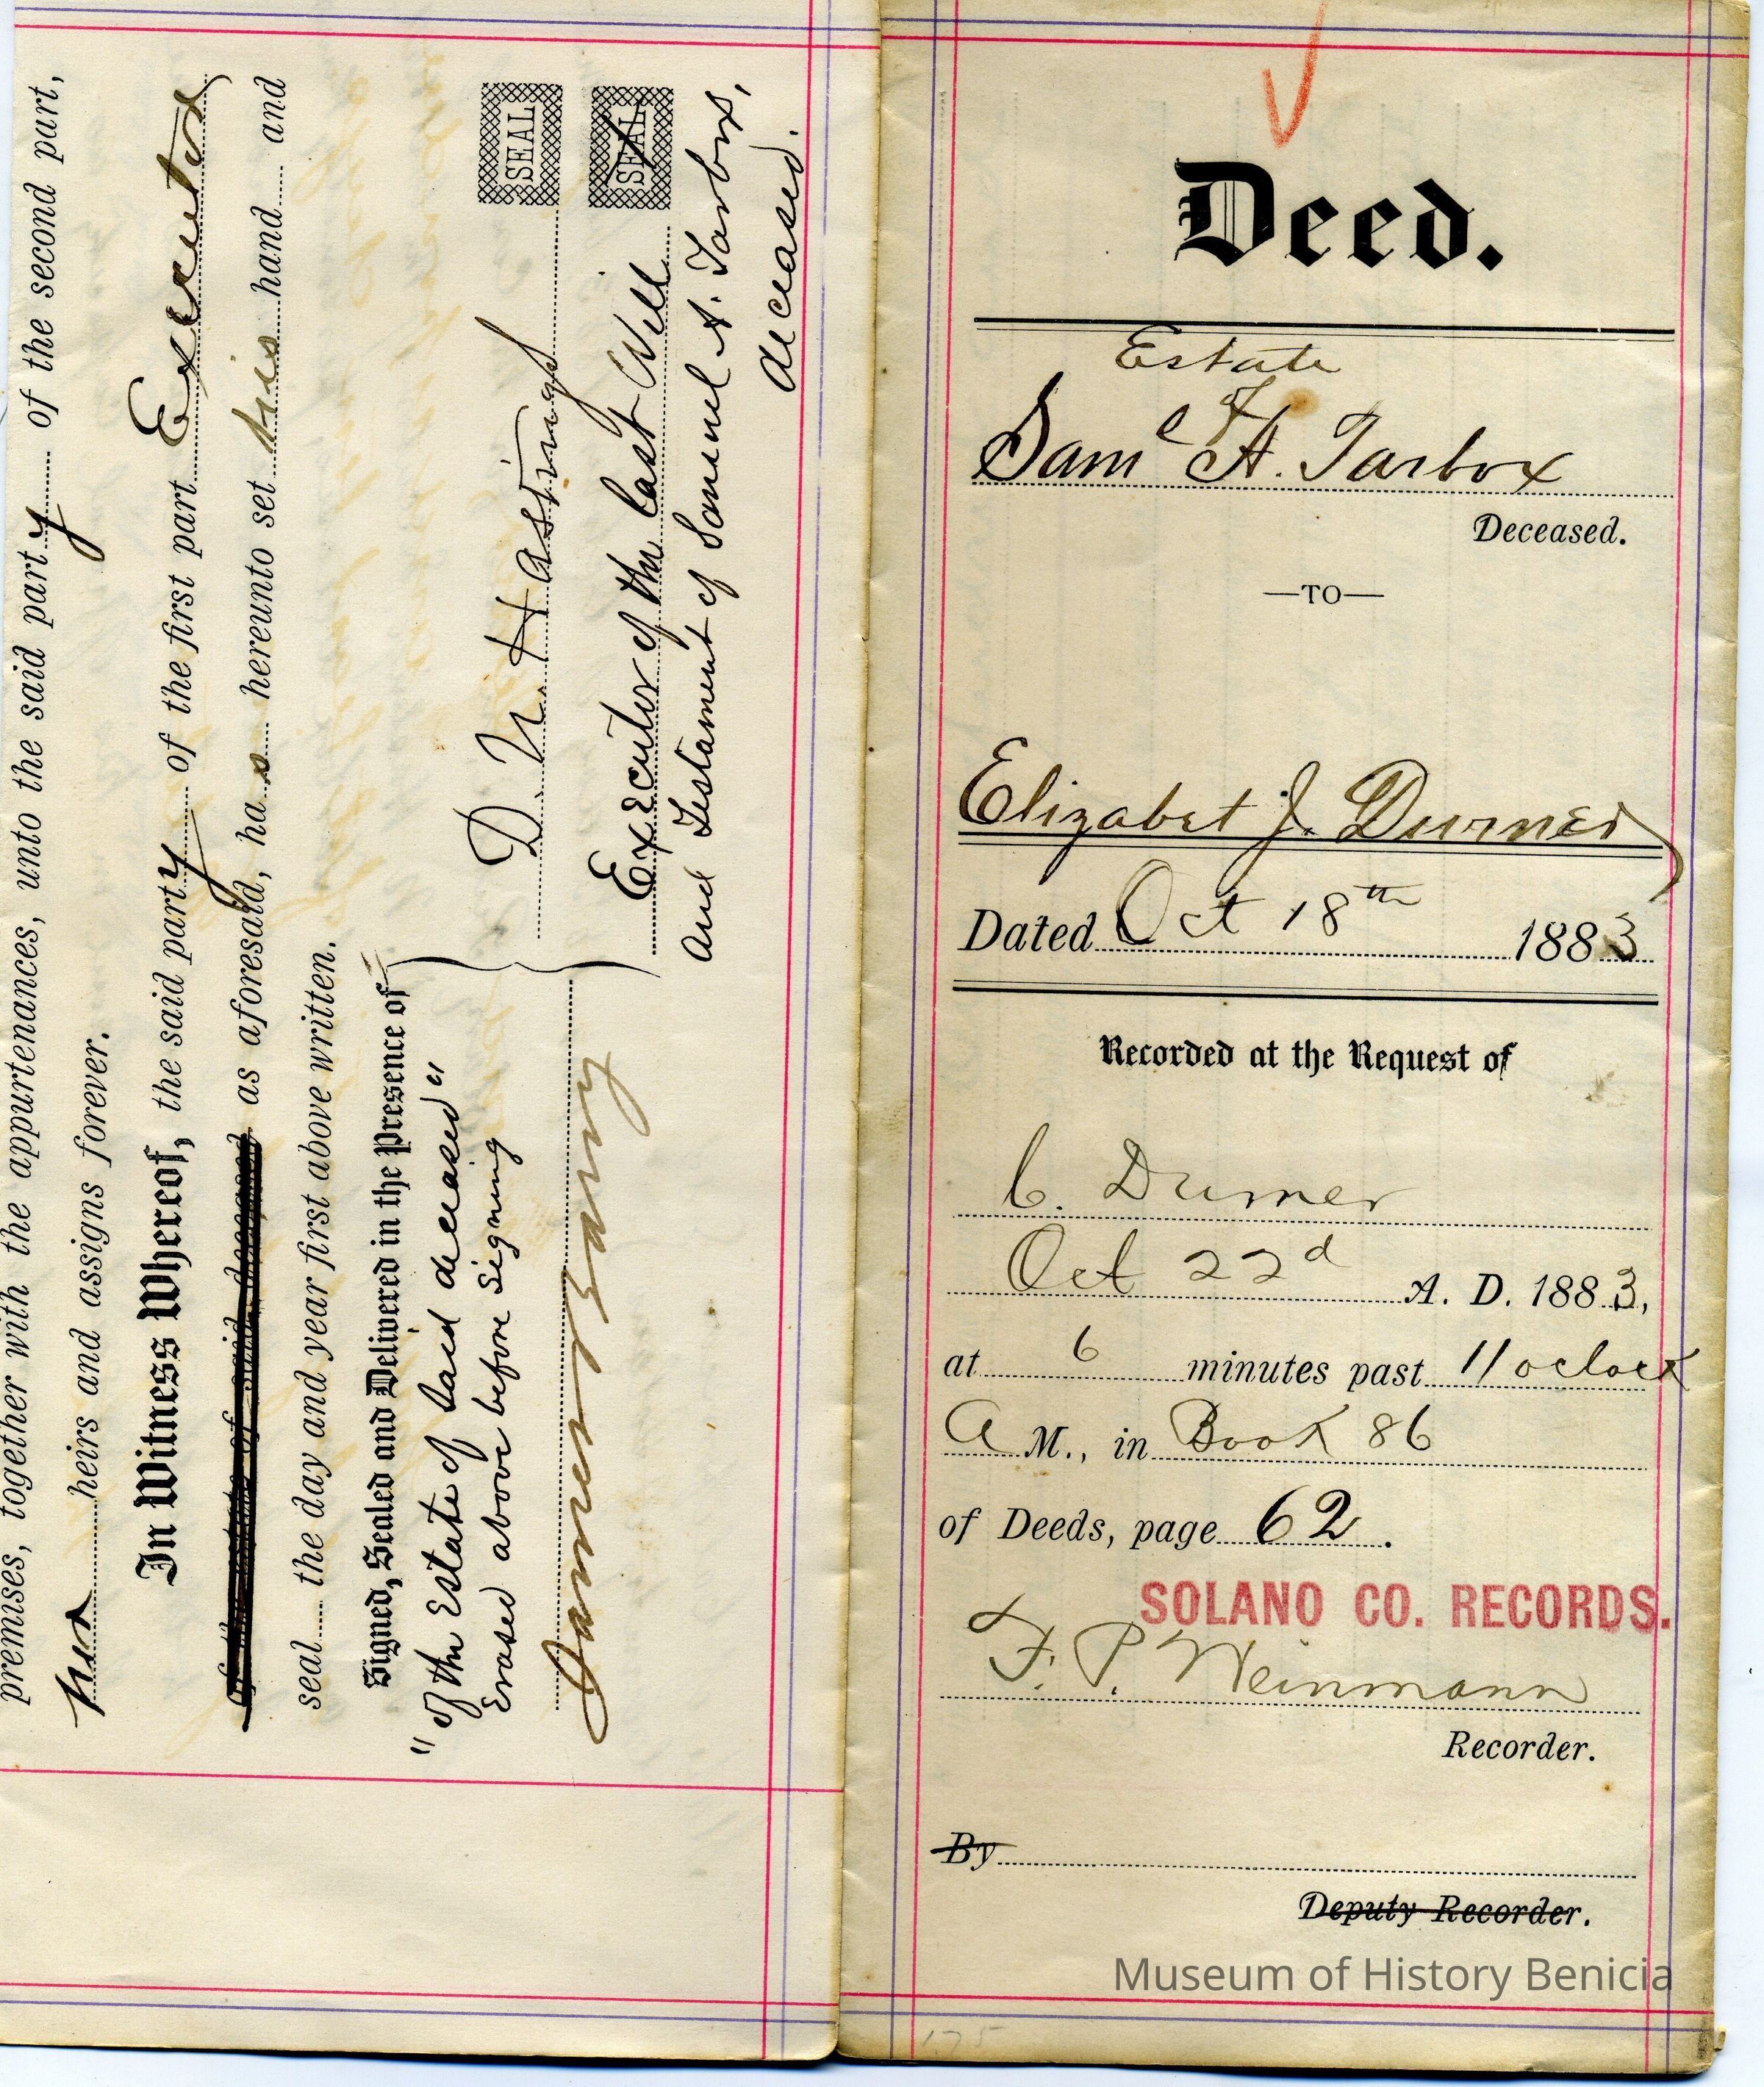 premises, together with the appurtenances, unto the said party of the second part,
her heirs and assigns forever.
In Witness Whereof, the said party of the first part Executor
of the estate of said deceased as aforesaid, has hereunto set his hand and
seal the day and year first above written.
Signed, Sealed and Delivered in the Presence of
"of the Estate of said deceased"
Erased above before signing
D. N. Hastings SEAL
Executor of the last Will SEAL
and Testament of Samuel A. Tarbox,
deceased.
Deed.
Estate
of
Saml A. Tarbox
Deceased.
—TO—
Elizabet J. Durner
Dated Oct 18th 1883
Recorded at the Request of
C. Durner
Oct 22d A. D. 1883,
at 6 minutes past 11 oclock
A M., in Book 86
of Deeds, page 62.
SOLANO CO. RECORDS.
F. P. Weinmann
Recorder.
By
Deputy Recorder.
Museum of History Benicia
175